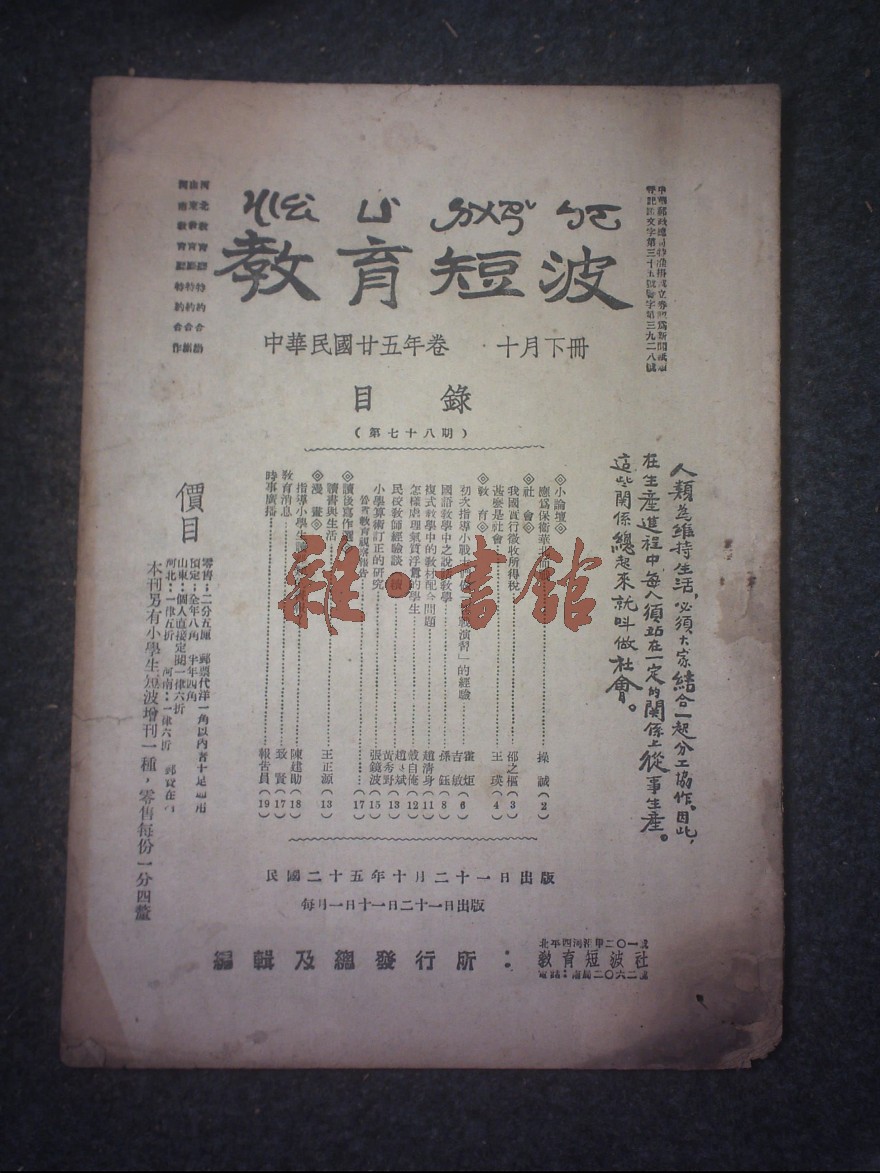 教育短波
中華民國廿五年卷 十月下冊
目錄
（第七十八期）
河北教育廳特約合辦
山東教育廳特約合辦
河南教育廳特約合作
人類為維持生活，必須大家結合一起分工協作。因此，
在生產進程中，每人須站在一定的關係上從事生產。
這些關係總起來就叫做社會。
◇小論壇◇
應爲保衛華北 操誠(2)
◇社會◇
我國實行徵收所得稅 邵之樞(3)
甚麼是社會 王瑛(4)
◇教育◇
初次指導小戰 演習」的經驗 霍炬 吉敏(6)
國語教學中之說話教學 孫鈺(8)
複式教學中的教材配合問題 趙清身(11)
怎樣處理氣質浮囂的學生 敦自庵(12)
民校教師經驗談 趙斌 黃秀野(13)
小學算術訂正的研究 張鏡波(15)
教育視察報告 (17)
◇讀後寫作選
讀書與生活 王正源(13)
◇漫畫◇
指導小學生 陳建勛(18)
教育消息 致賢(17)
時事廣播 報告員(19)
價目
零售：二分五厘 郵票代洋一角以內者十足通用
預定：全年八角 半年四角
山東：個人直接定閱一律六折
河北：一律五折 河南：一律六折 郵費在
本刊另有小學生短波增刊一種，零售每份一分四釐
民國二十五年十月二十一日出版
每月一日十一日二十一日出版
編輯及總發行所：
北平四河沿甲二〇一號
教育短波社
電話：南局二〇六二號
雜·書館